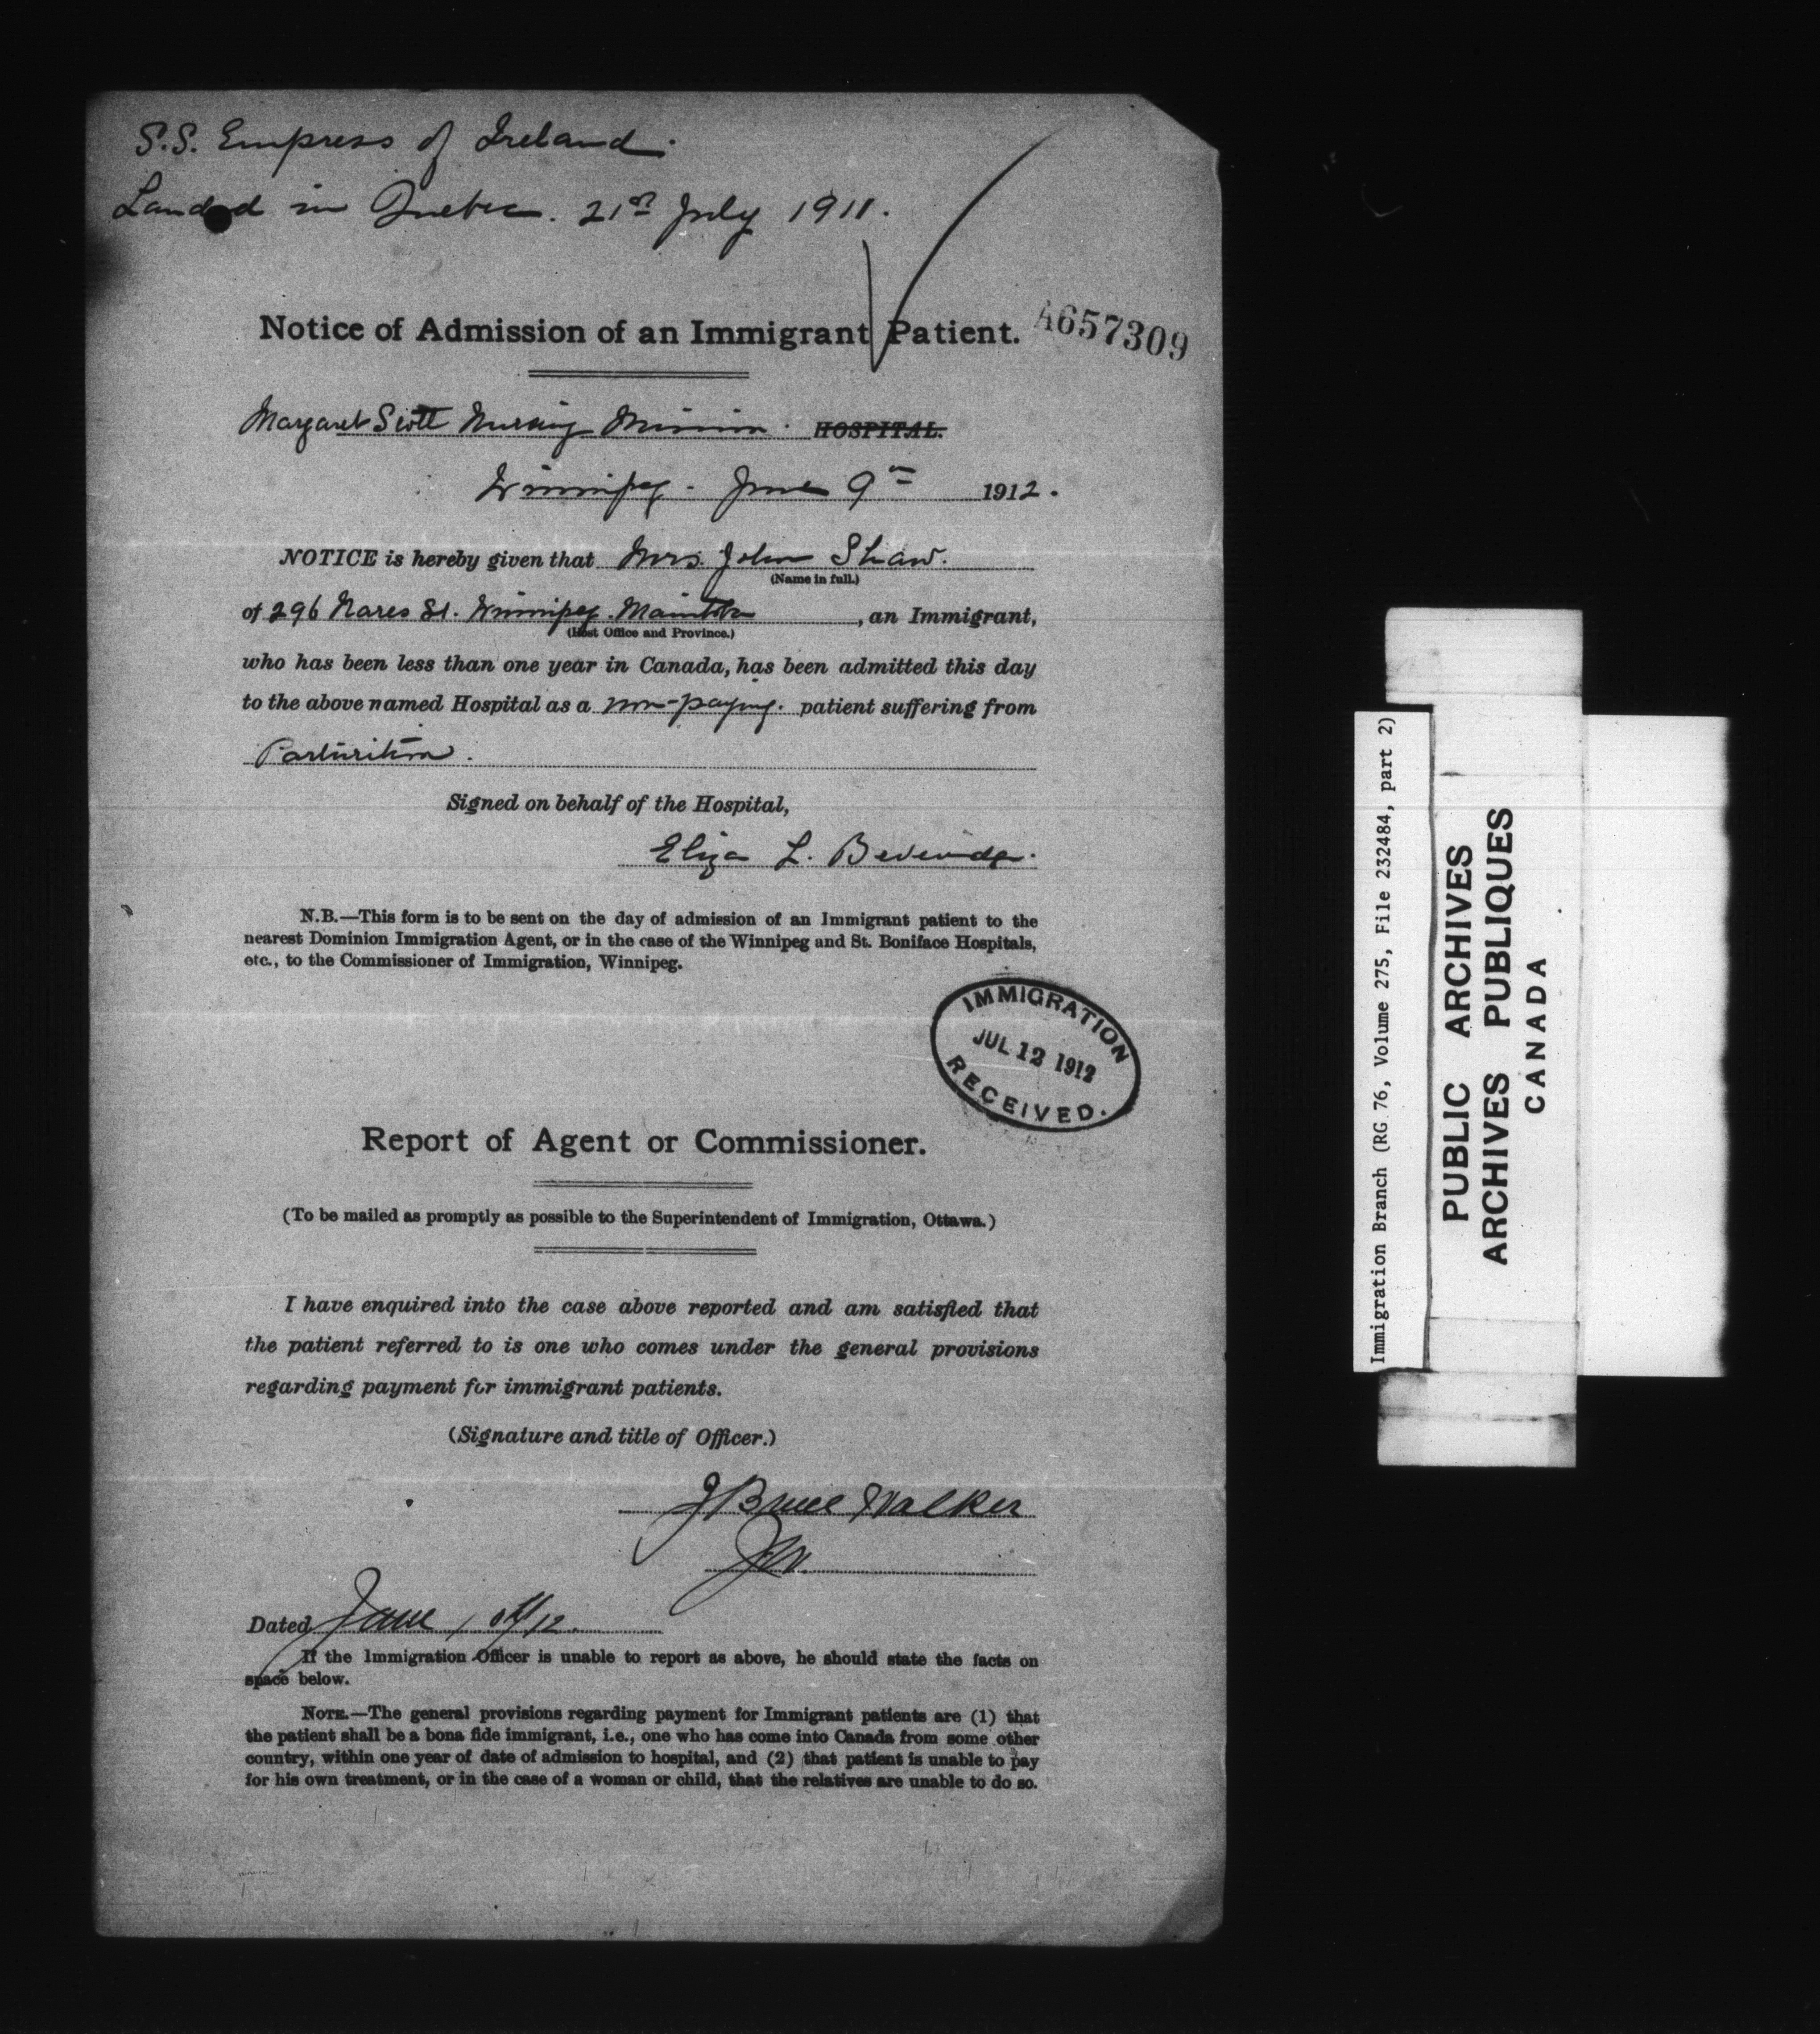 S.S. Empress of Ireland.
Landed in Quebec. 21st July 1911.
Notice of Admission of an Immigrant Patient.
A657309
Margaret Scott Nursing Mission. HOSPITAL.
Winnipeg - June 9th 1912.
NOTICE is hereby given that Mrs. John Shaw.
(Name in full.)
of 296 Nares St. Winnipeg. Manitoba, an Immigrant,
(Post Office and Province.)
who has been less than one year in Canada, has been admitted this day
to the above named Hospital as a non-paying. patient suffering from
Parturition.
Signed on behalf of the Hospital,
Eliza L. Beveridge.
N.B.—This form is to be sent on the day of admission of an Immigrant patient to the
nearest Dominion Immigration Agent, or in the case of the Winnipeg and St. Boniface Hospitals,
etc., to the Commissioner of Immigration, Winnipeg.
IMMIGRATION
JUL 12 1912
RECEIVED.
Report of Agent or Commissioner.
(To be mailed as promptly as possible to the Superintendent of Immigration, Ottawa.)
I have enquired into the case above reported and am satisfied that
the patient referred to is one who comes under the general provisions
regarding payment for immigrant patients.
(Signature and title of Officer.)
J Bruce Walker
Dated June
If the Immigration Officer is unable to report as above, he should state the facts on
space below.
NOTE.—The general provisions regarding payment for Immigrant patients are (1) that
the patient shall be a bona fide immigrant, i.e., one who has come into Canada from some other
country, within one year of date of admission to hospital, and (2) that patient is unable to pay
for his own treatment, or in the case of a woman or child, that the relatives are unable to do so.
Immigration Branch (RG 76, Volume 275, File 232484, part 2)
PUBLIC ARCHIVES
ARCHIVES PUBLIQUES
CANADA